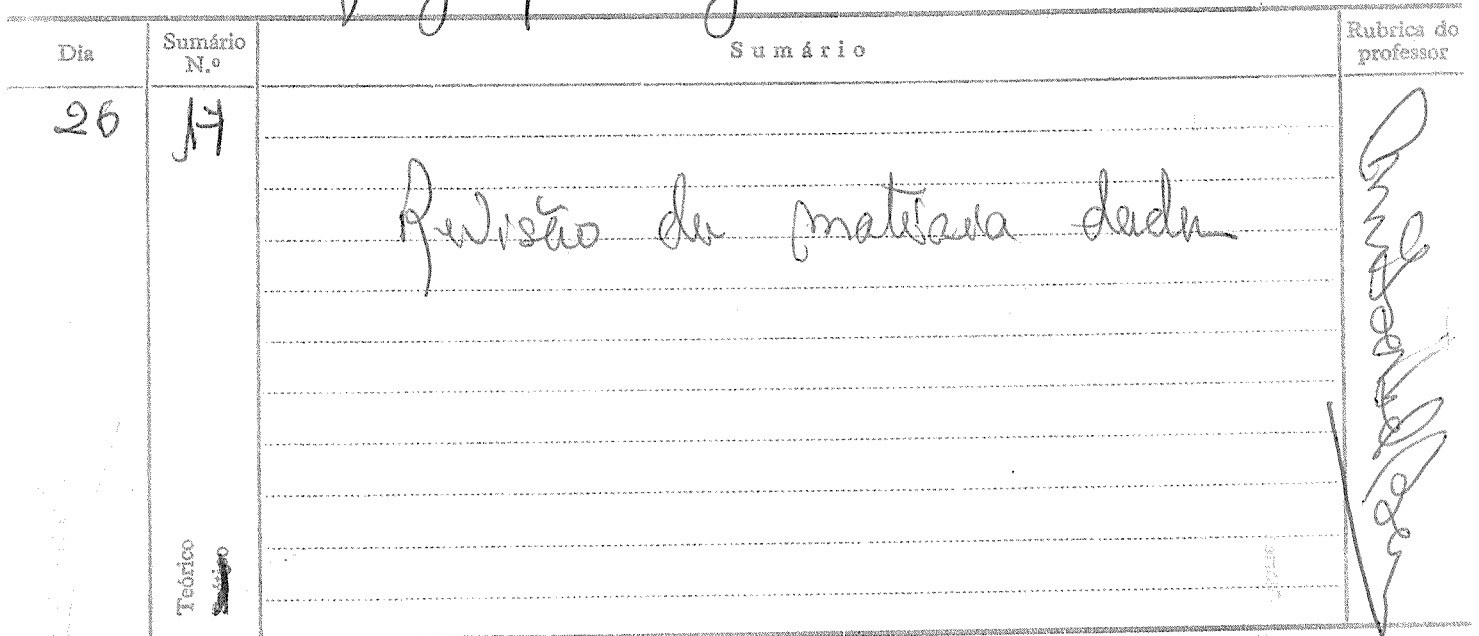 Dia
Sumário N.º
Sumário
Rubrica do professor
26
17
Revisão da matéria dada
Teórico